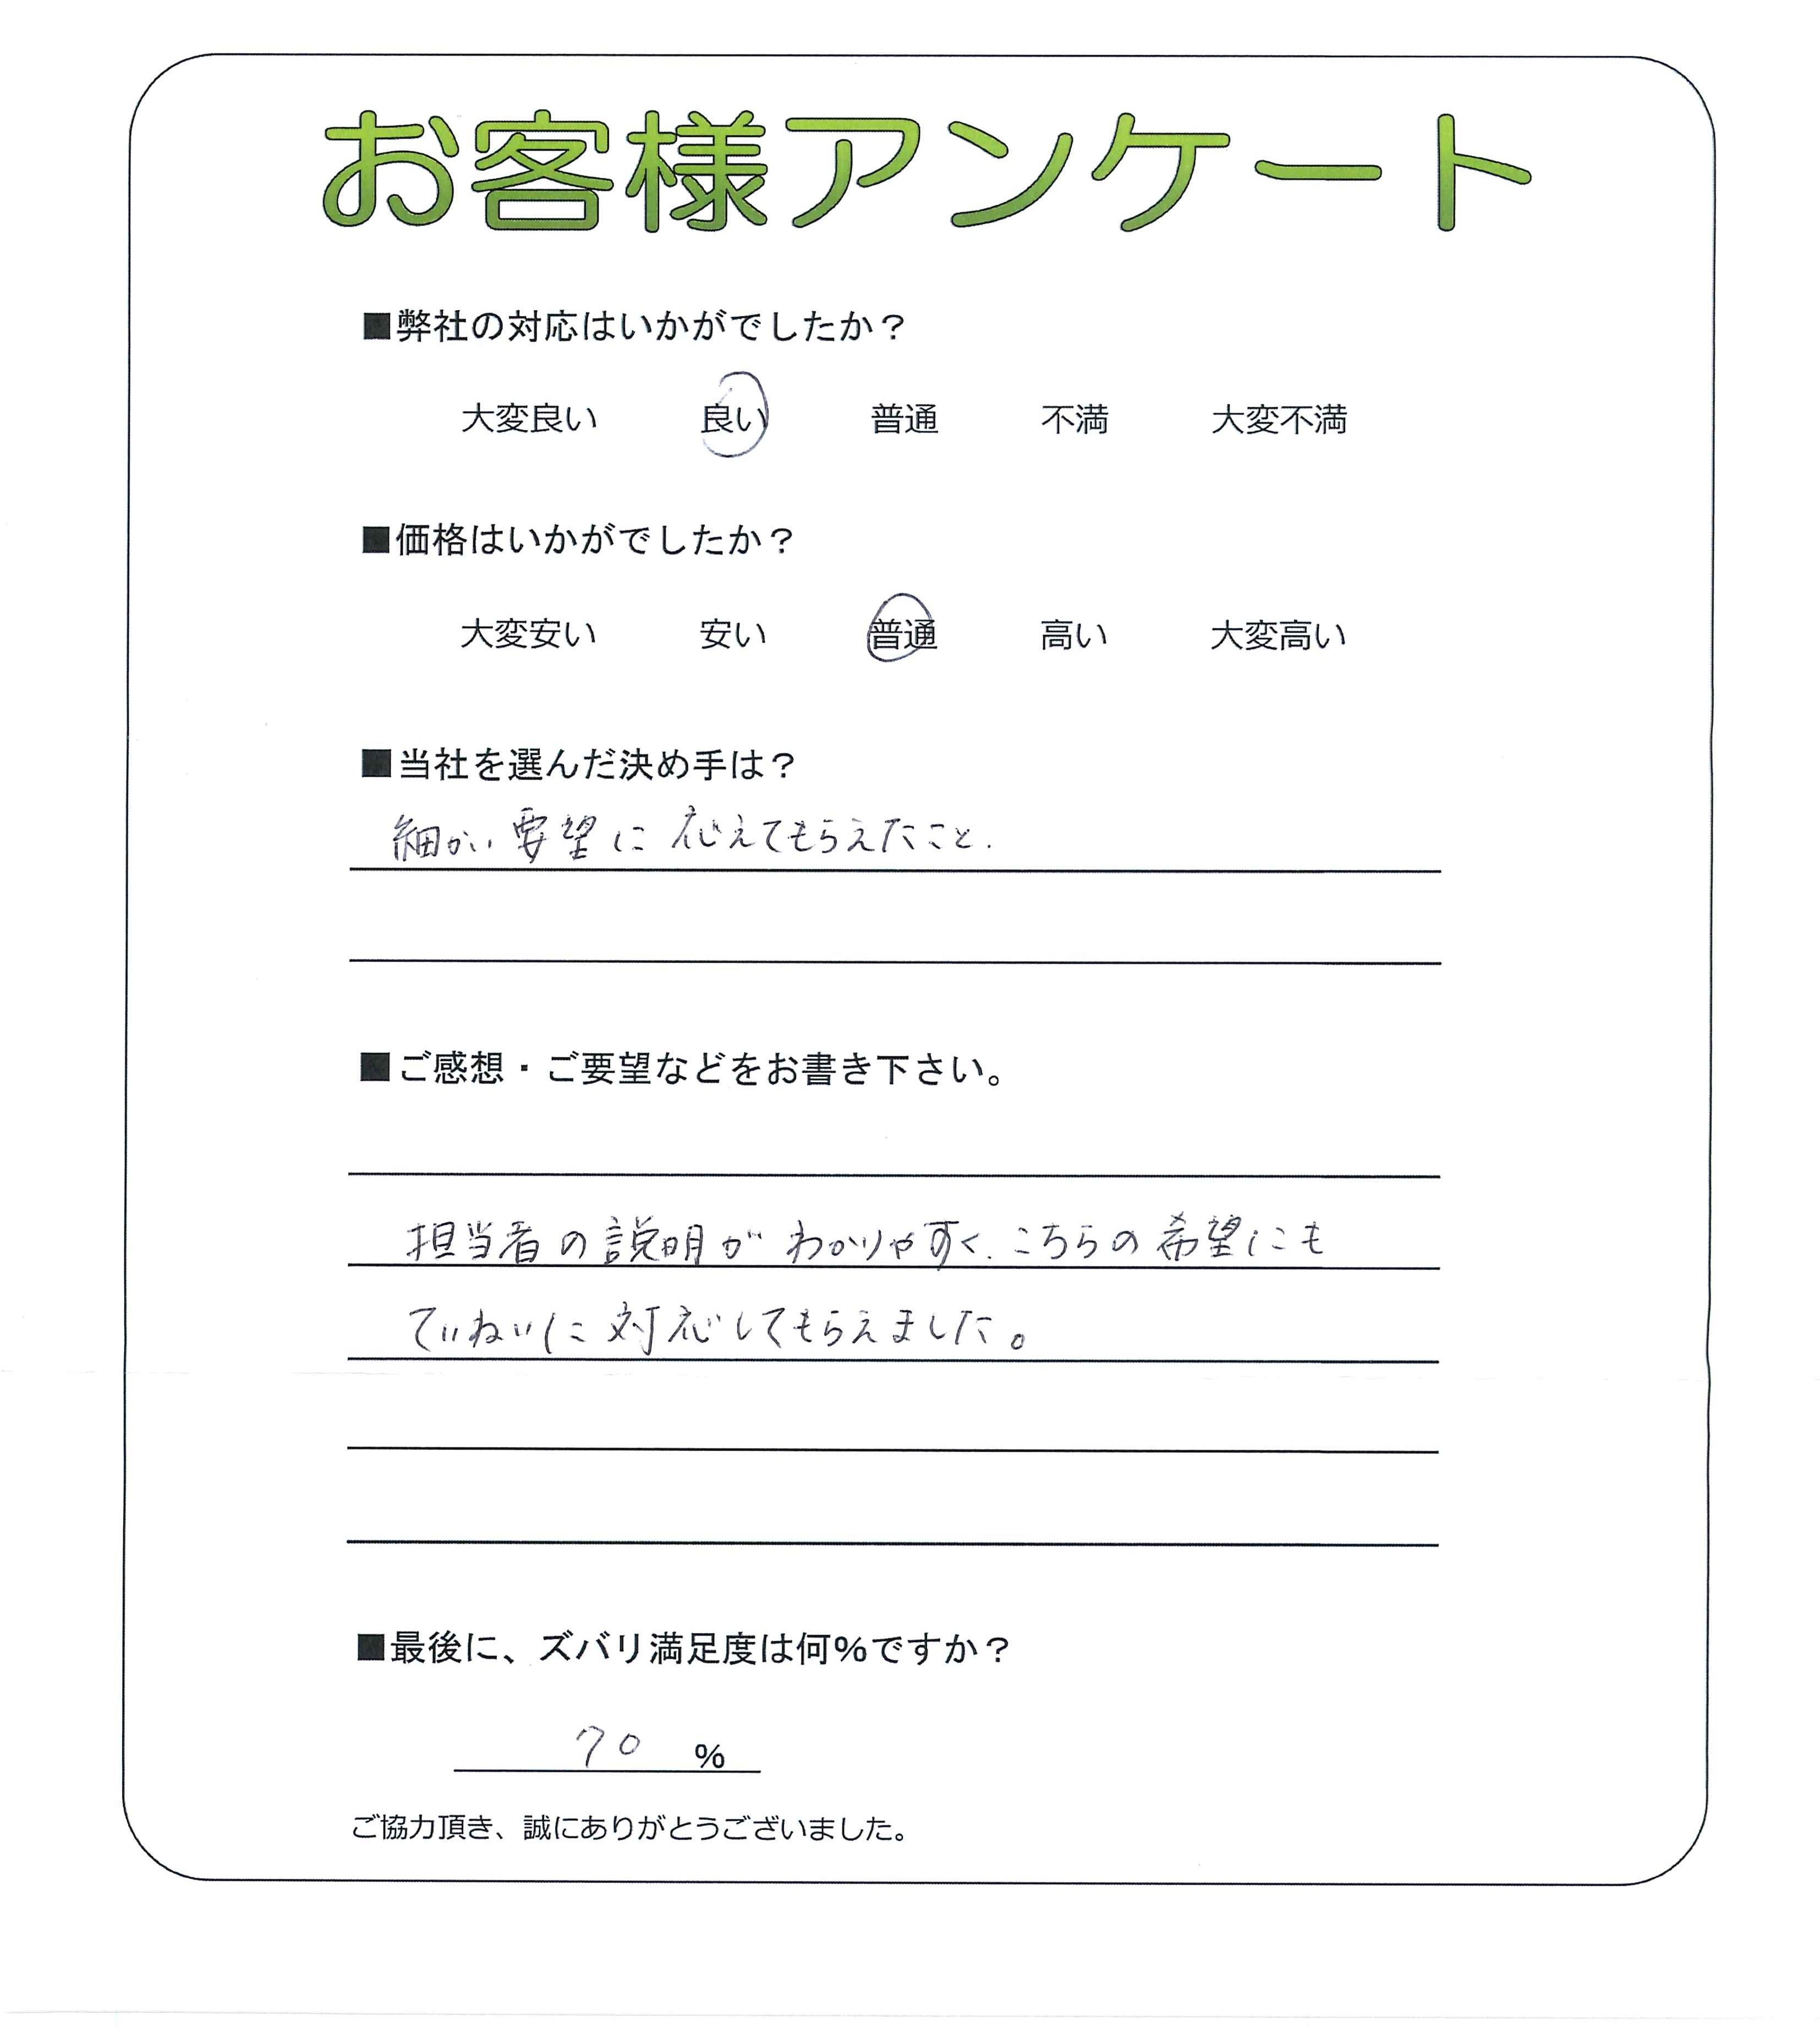 お客様アンケート
■弊社の対応はいかがでしたか？
大変良い 良い 普通 不満 大変不満
■価格はいかがでしたか？
大変安い 安い 普通 高い 大変高い
■当社を選んだ決め手は？
細かい要望に応えてもらえたこと.
■ご感想・ご要望などをお書き下さい。
担当者の説明がわかりやすく、こちらの希望にも
ていねいに対応してもらえました。
■最後に、ズバリ満足度は何％ですか？
70 %
ご協力頂き、誠にありがとうございました。